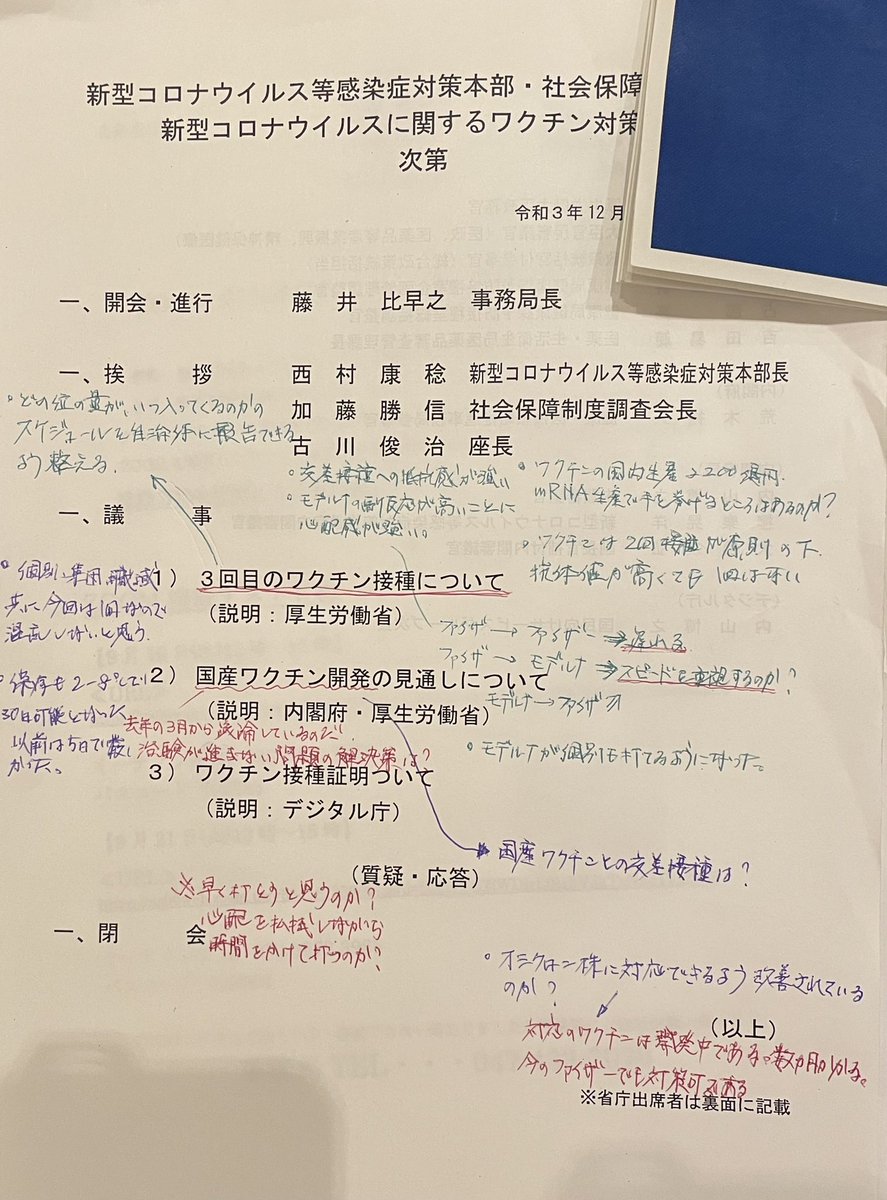 新型コロナウイルス等感染症対策本部・社会保障
新型コロナウイルスに関するワクチン対策
次第
令和3年12月
一、開会・進行 藤井 比早之 事務局長
一、挨 拶 西村 康稔 新型コロナウイルス等感染症対策本部長
加藤 勝信 社会保障制度調査会長
古川 俊治 座長
・どの位の量が、いつ入ってくるのかの
スケジュールを自治体に報告できる
よう整える。
・交差接種への抵抗感が強い
・モデルナの副反応が高いことに
心配感が強い。
・ワクチンの国内生産
mRNA生産で手を挙げるところはあるのか?
・ワクチンは2回接種が原則の下、
抗体値が高くても1回はない
一、議 事
1) 3回目のワクチン接種について
(説明:厚生労働省)
・個別、集団、職域
共に今回は1回なので
混乱しないと思う。
ファイザー→ファイザー→遅れる
ファイザー→モデルナ⇒スピードを重視するのか?
モデルナ→ファイザー
2) 国産ワクチン開発の見通しについて
(説明:内閣府・厚生労働省)
・保存も2-8℃で
30日可能となった
以前は5日で厳し
かった。
去年の3月から議論しているのだ
治験が進まない問題の解決策は?
・モデルナが個別も打てるようになった。
3) ワクチン接種証明ついて
(説明:デジタル庁)
・国産ワクチンとの交差接種は?
(質疑・応答)
※早く打とうと思うのか?
心配を払拭しながら
時間をかけて打つのか?
一、閉 会
・オミクロン株に対応できるよう改善されている
のか?
(以上)
対応のワクチンは開発中である。数カ月かかる。
今のファイザーでも対応可である
※省庁出席者は裏面に記載